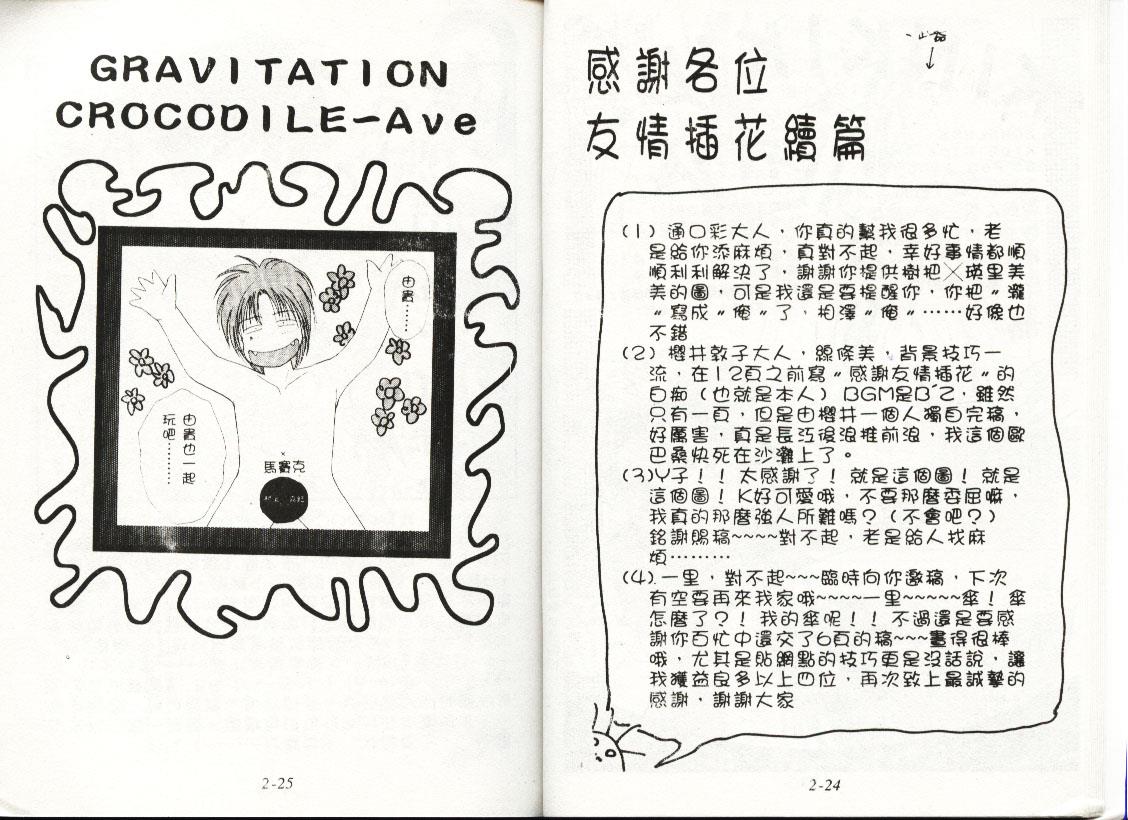 感謝各位
友情插花續篇
(1) 通口彩大人，你真的幫我很多忙，老
是給你添麻煩，真對不起，幸好事情都順
順利利解決了，謝謝你提供樹把╳瑛里美
美的圖，可是我還是要提醒你，你把〝瀧
〞寫成〝俺〞了，相澤〝俺〞……好像也
不錯
(2) 櫻井敦子大人，線條美，背景技巧一
流，在12頁之前寫〝感謝友情插花〞的
白痴（也就是本人）BGM是B'Z，雖然
只有一頁，但是由櫻井一個人獨自完稿，
好厲害，真是長江後浪推前浪，我這個歐
巴桑快死在沙灘上了。
(3)Y子！！太感謝了！就是這個圖！就是
這個圖！K好可愛哦，不要那麼委屈嘛，
我真的那麼強人所難嗎？（不會吧？）
銘謝賜稿~~~~對不起，老是給人找麻
煩………
(4).一里，對不起~~~臨時向你邀稿，下次
有空要再來我家哦~~~~一里~~~~~傘！傘
怎麼了？！我的傘呢！！不過還是要感
謝你百忙中還交了6頁的稿~~~畫得很棒
哦，尤其是貼網點的技巧更是沒話說，讓
我獲益良多以上四位，再次致上最誠摯的
感謝，謝謝大家
2-24
GRAVITATION
CROCODILE-Ave
由貴……
由貴也一起
玩吧………
×
馬賽克
2-25